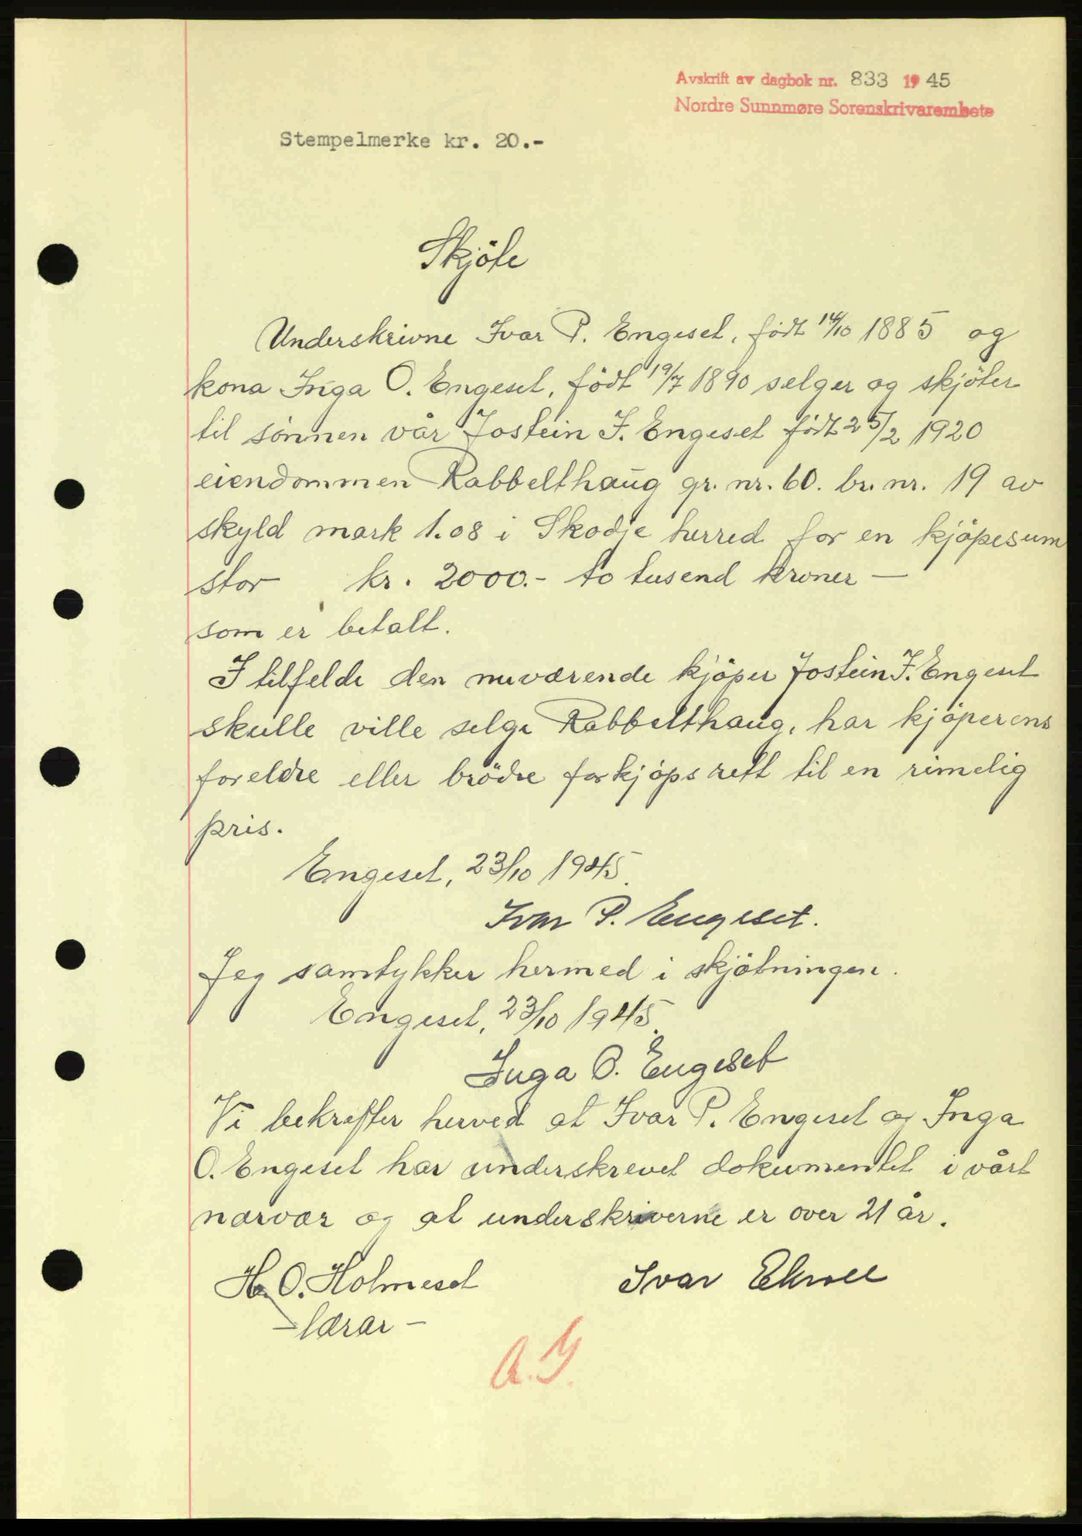 Avskrift av dagbok nr. 833 1945
Nordre Sunnmøre Sorenskrivarembete
Stempelmerke kr. 20.-
Skjöte
Underskrivne Ivar P. Engeset, født 14/10 1885 og
kona Inga O. Engeset, födt 19/7 1890 selger og skjöter
til sönnen vår Jostein I. Engeset födt 25/2 1920
eiendommen Rabbelthaug gr. nr. 60. br. nr. 19 av
skyld mark 1.08 i Skodje herred for en kjöpesum
stor kr. 2000.- to tusend kroner —
som er betalt.
I tilfelde den nuværende kjöper Jostein I. Engeset
skulle ville selge Rabbelthaug, har kjöperens
foreldre eller brödre forkjöpsrett til en rimelig
pris.
Engeset, 23/10 1945.
Ivar P. Engeset.
Jeg samtykker hermed i skjötningen.
Engeset, 23/10 1945.
Inga O. Engeset
Vi bekrefter herved at Ivar P. Engeset og Inga
O. Engeset har underskrevet dokumentet i vårt
nærvær og at underskriverne er over 21 år.
H. O. Holmeset Ivar Ekroll
- lærar -
A.Y.